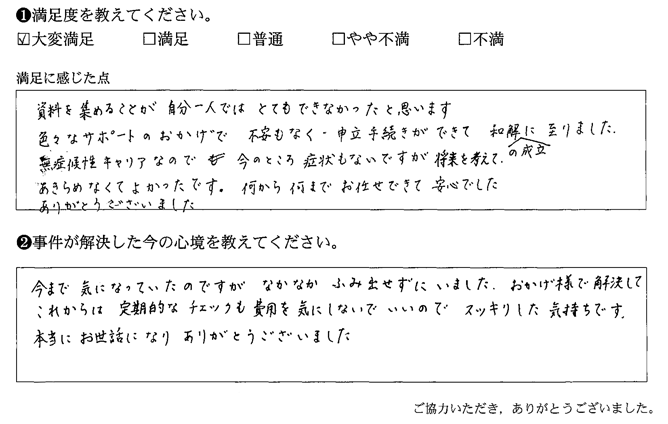 ❶満足度を教えてください。
☑大変満足 □満足 □普通 □やや不満 □不満
満足に感じた点
資料を集めることが 自分一人では とてもできなかったと思います
色々なサポートのおかげで 不安もなく・申立手続きができて 和解に至りました.
の成立
無症候性キャリアなので 今のところ症状もないですが 将来を考えて、
あきらめなくてよかったです。何から何まで お任せできて 安心でした
ありがとうございました
❷事件が解決した今の心境を教えてください。
今まで 気になっていたのですが なかなか ふみ出せずに いました. おかげ様で解決して
これからは 定期的な チェックも費用を気にしないで いいので スッキリした 気持ちです.
本当に お世話になり ありがとうございました
ご協力いただき，ありがとうございました。